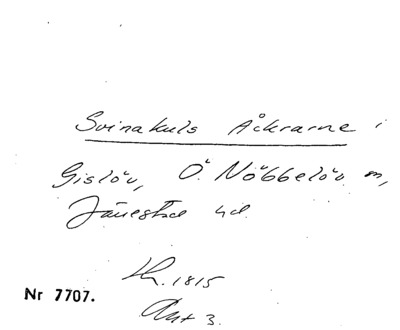 Svinakuls Åkrarne i
Gislöv, Ö. Nöbbelöv m,
Järrestad hd.
1815
Nr 7707.
Akt 3.